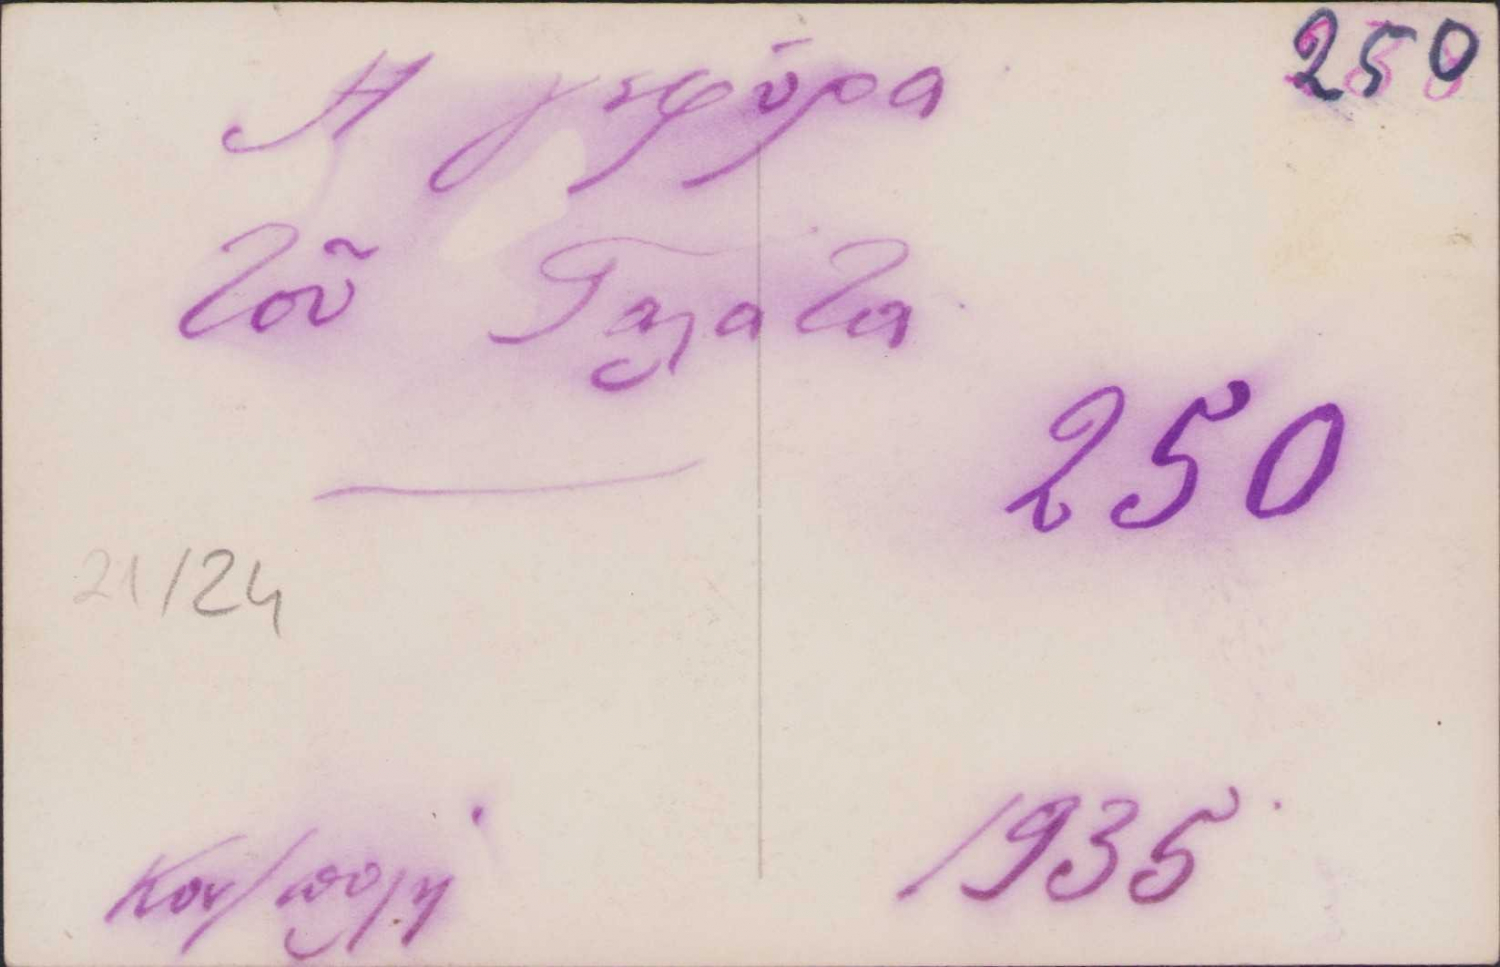 250
Η γεφύρα
τοῦ Γαλατα
250
21/24
Κον/πολη
1935